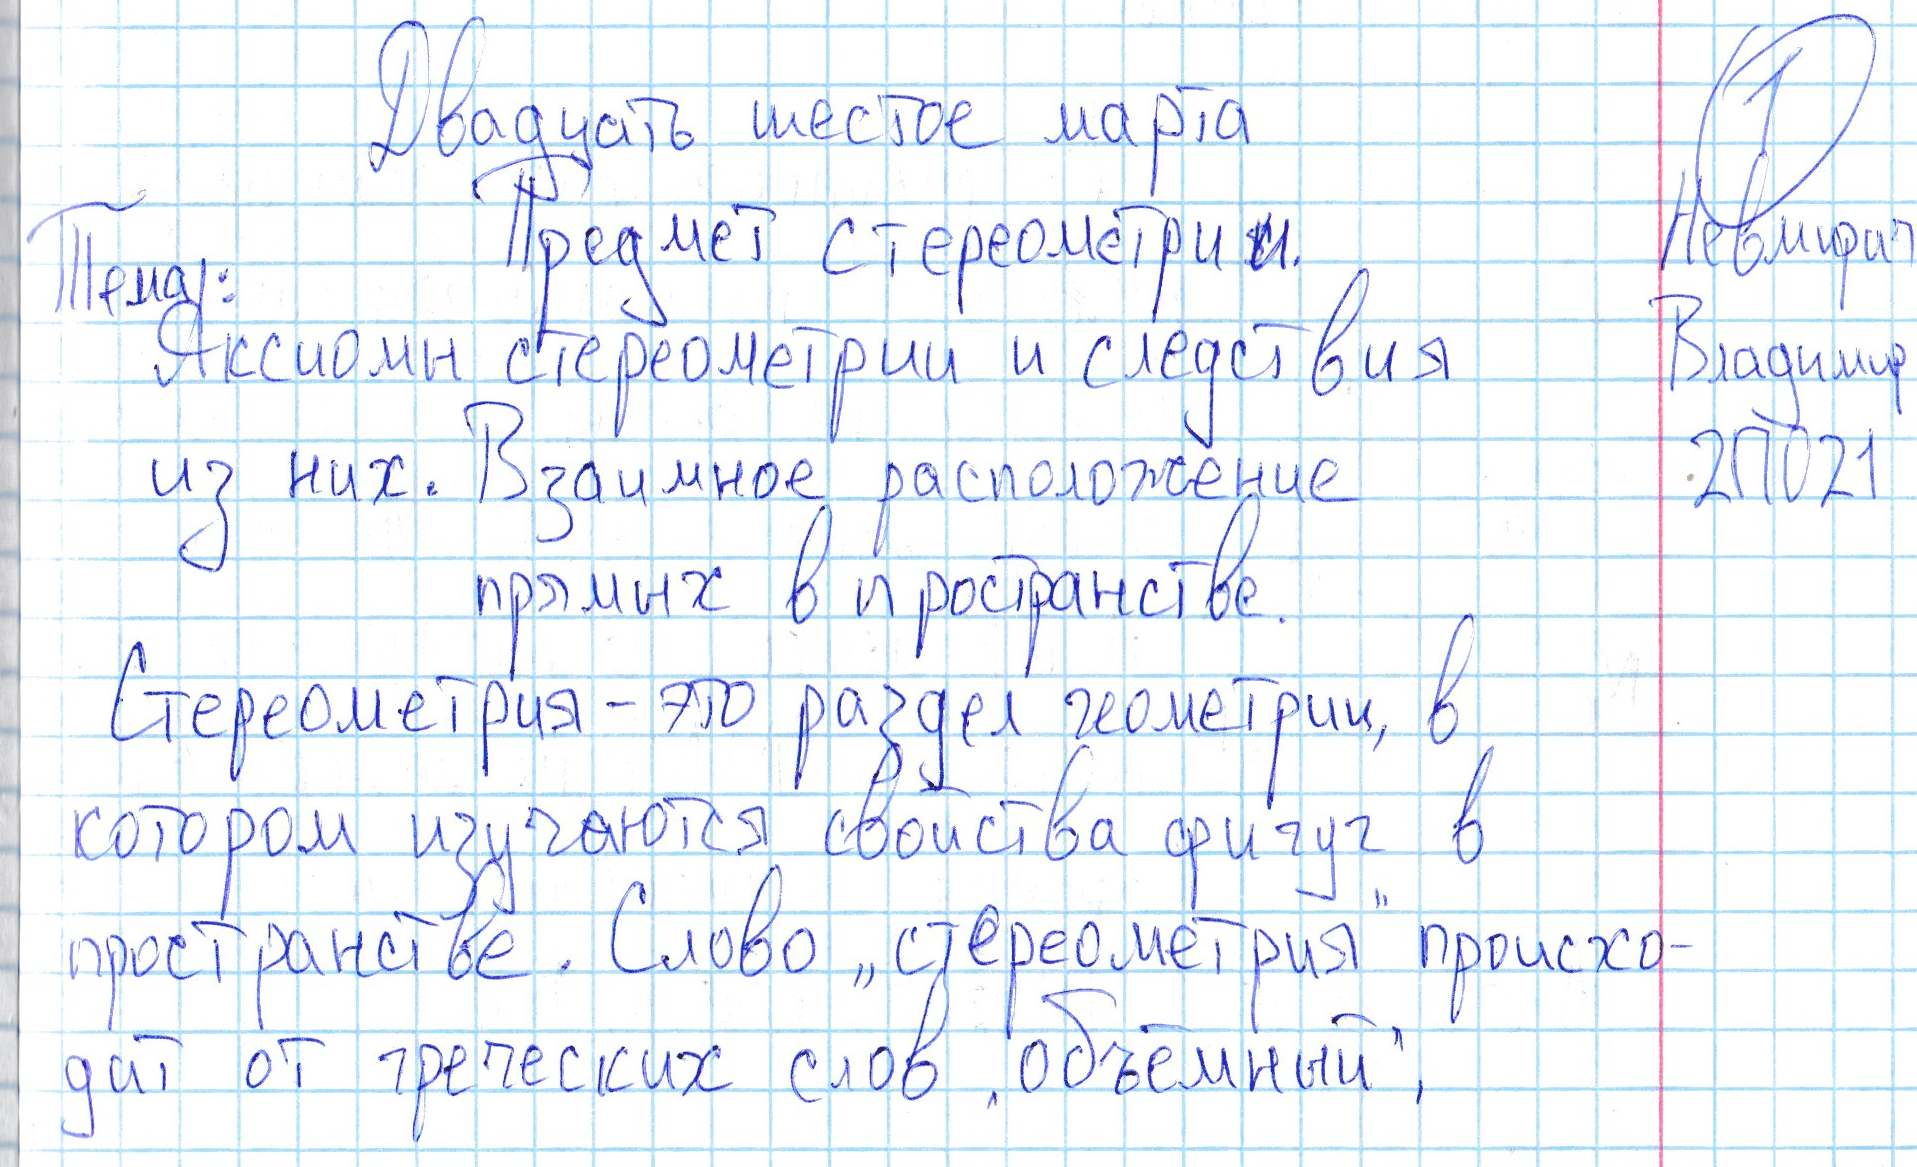 Двадцать шестое марта
1
Тема: Предмет стереометрии.
Аксиомы стереометрии и следствия
из них. Взаимное расположение
прямых в пространстве.
Владимир
2П021
Стереометрия - это раздел геометрии, в
котором изучаются свойства фигуг в
пространстве. Слово „стереометрия" происхо-
дит от греческих слов „объёмный",